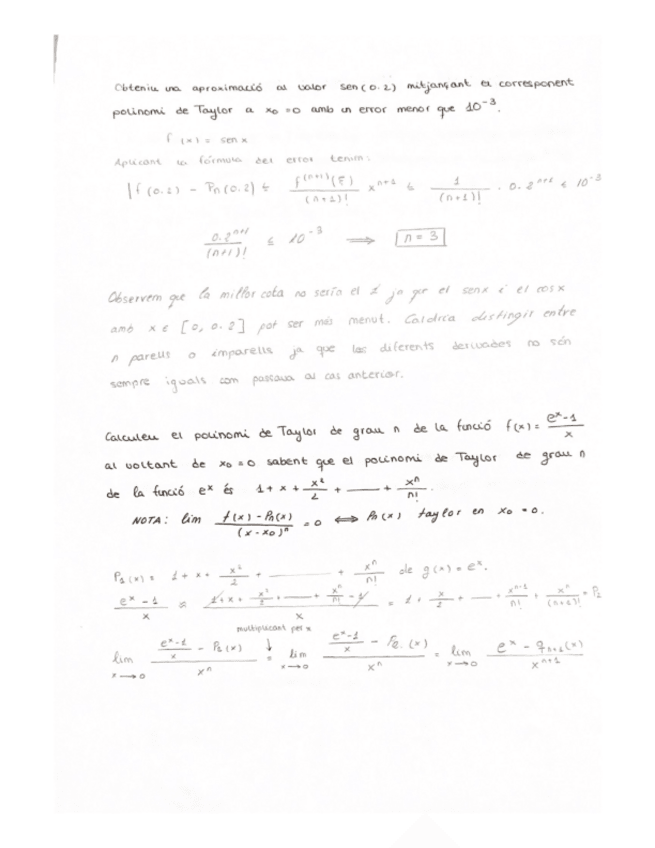 Obteniu una aproximació al valor sen(0.2) mitjançant el corresponent
polinomi de Taylor a x₀=0 amb un error menor que 10⁻³.
f(x) = sen x
Aplicant la fórmula del error tenim:
|f(0.2) - Pₙ(0.2)| ≤ f⁽ⁿ⁺¹⁾(ξ)/(n+1)! xⁿ⁺¹ ≤ 1/(n+1)! · 0.2ⁿ⁺¹ ≤ 10⁻³
0.2ⁿ⁺¹/(n+1)! ≤ 10⁻³ ⟹ n = 3
Observem que la millor cota no seria el 1 ja que el senx i el cosx
amb x ∈ [0, 0.2] pot ser més menut. Caldria distingir entre
n parells o imparells ja que les diferents derivades no són
sempre iguals com passava al cas anterior.
Calculeu el polinomi de Taylor de grau n de la funció f(x) = (eˣ-1)/x
al voltant de x₀=0 sabent que el polinomi de Taylor de grau n
de la funció eˣ és 1 + x + x²/2 + —— + xⁿ/n! .
NOTA: lim (f(x) - Pn(x))/(x-x₀)ⁿ = 0 ⟺ Pn(x) taylor en x₀ = 0.
P₁(x) = 1 + x + x²/2 + —— + xⁿ/n! de g(x) = eˣ.
(eˣ-1)/x ≈ (1 + x + x²/2 + —— + xⁿ/n! - 1)/x = 1 + x/2 + —— + xⁿ⁻¹/n! + xⁿ/(n+1)! = P₂
multiplicant per x
lim x→0 ((eˣ-1)/x - P₂(x))/xⁿ = lim x→0 ((eˣ-1)/x - P₂(x))/xⁿ = lim x→0 (eˣ - qₙ₊₁(x))/xⁿ⁺¹